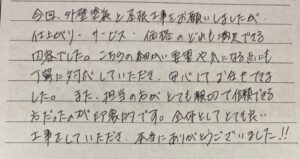 今回、外壁塗装と屋根工事をお願いしましたが、
仕上がり・サービス・価格のどれも満足できる
内容でした。こちらの細かい要望や気になる点にも
丁寧に対応していただき、安心してお任せできま
した。また、担当の方がとても親切で信頼できる
方だったのが印象的です。全体としてとても良い
工事をしていただき、本当にありがとうございました!!